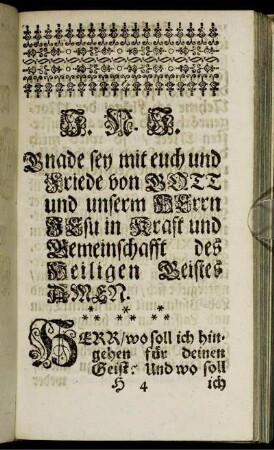 J. N. J.
Gnade sey mit euch und
Friede von GOTT
und unserm HErrn
JEsu in Kraft und
Gemeinschafft des
Heiligen Geistes
AMEN.
HERR/ wo soll ich hin-
gehen für deinen
Geist? Und wo soll
H 4 ich